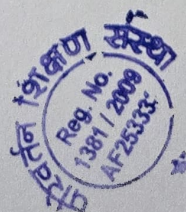 परिवर्तन शिक्षण संस्था
Reg. No.
1381 / 2009
AF25333